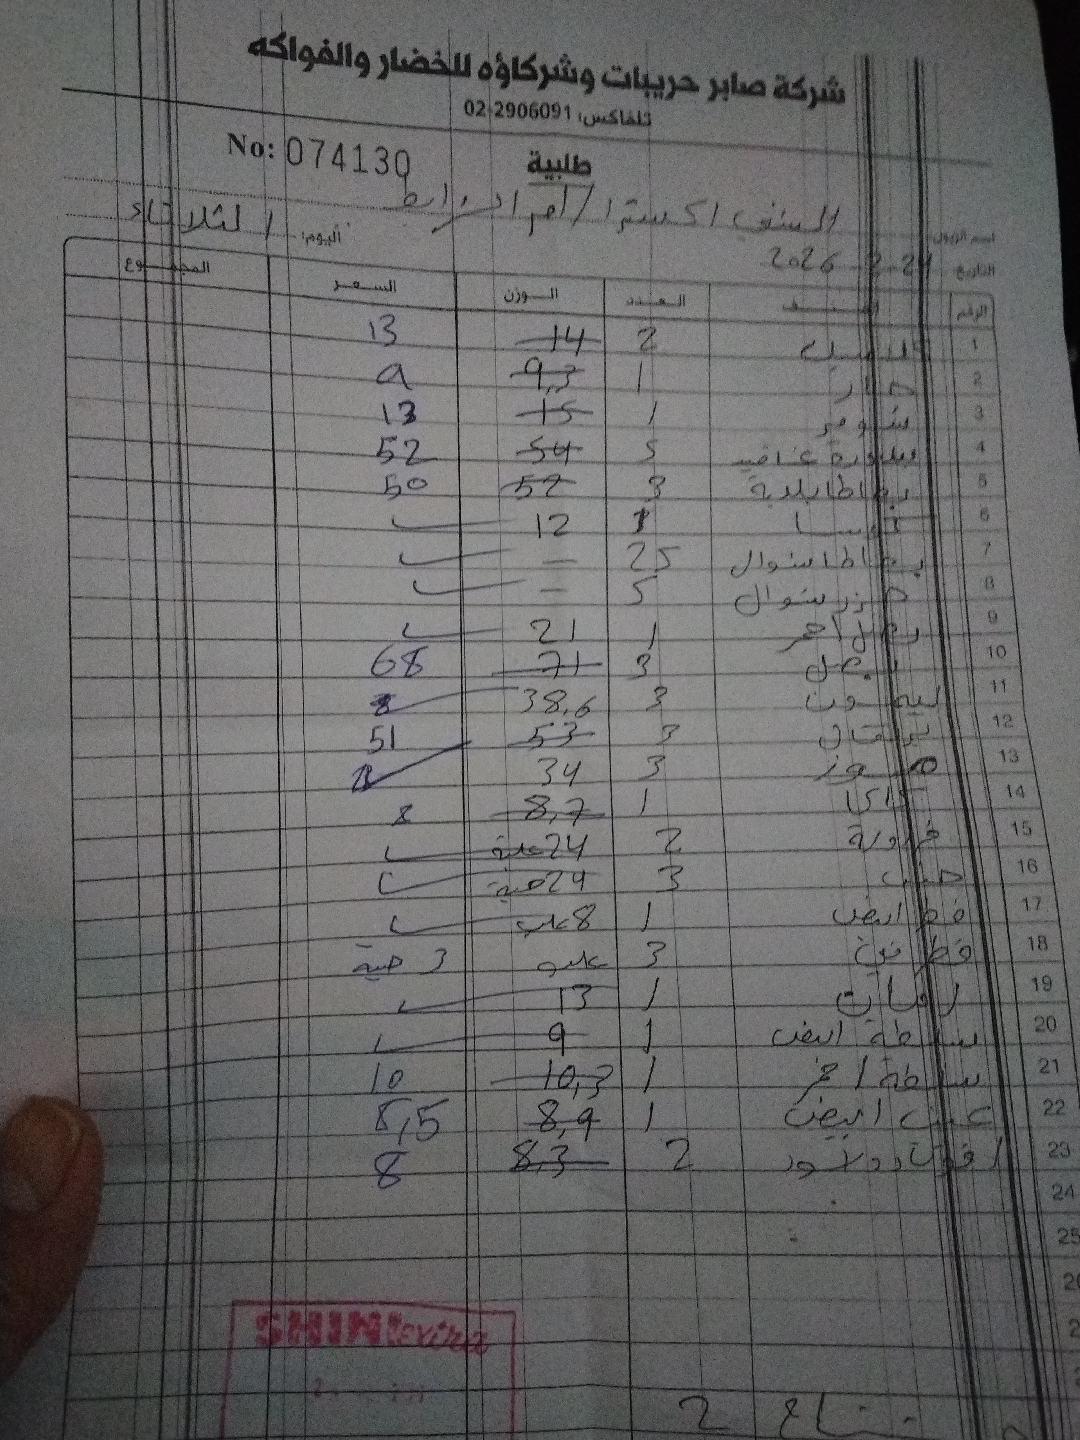 شركة صابر حريبات وشركاؤه للخضار والفواكه
تلفاكس: 02-2906091
No: 074130
طلبية
اسم الزبون: السني اكسترا /
التاريخ: 2026-2-24 اليوم: الثلاثاء
الرقم الصنف العدد الوزن السعر المجموع
1 2 14 13
2 خيار 1 9,3 9
3 شومر 1 15 13
4 بندورة عناقيد 5 54 52
5 بطاطا بلدية 3 52 50
6 كوسا 1 12
7 بطاطا شوال 25 —
8 جزر شوال 5 —
9 بصل احمر 1 21
10 بصل 3 71 68
11 ليمون 3 38,6
12 برتقال 3 53 51
13 موز 3 34
14 1 8,7 8
15 فراولة 2 24 علبة
16 3 24 حبة
17 فطر ابيض 1 8 علب
18 فطر 3 3 حبة
19 1 13
20 ابيض 1 9
21 1 10,3 10
22 عنب ابيض 1 8,9 8,5
23 افوكادو 2 8,3 8
24
25
SHINI extra
2